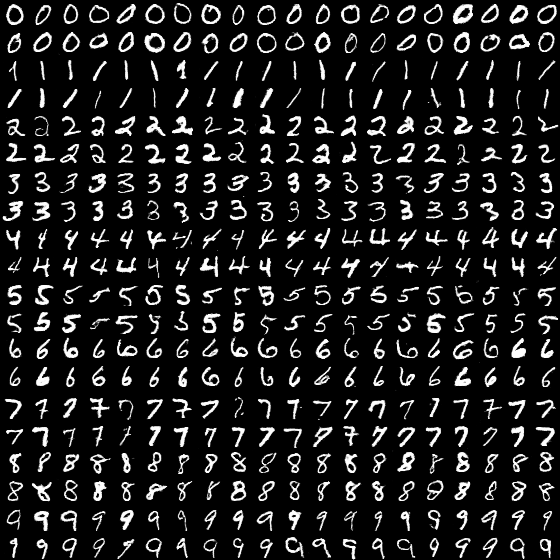 0 0 0 0 0 0 0 0 0 0 0 0 0 0 0 0 0 0 0 0
0 0 0 0 0 0 0 0 0 0 0 0 0 0 0 0 0 0 0 0
1 1 1 1 1 1 1 1 1 1 1 1 1 1 1 1 1 1 1 1
1 1 1 1 1 1 1 1 1 1 1 1 1 1 1 1 1 1 1 1
2 2 2 2 2 2 2 2 2 2 2 2 2 2 2 2 2 2 2 2
2 2 2 2 2 2 2 2 2 2 2 2 2 2 2 2 2 2 2 2
3 3 3 3 3 3 3 3 3 3 3 3 3 3 3 3 3 3 3 3
3 3 3 3 3 3 3 3 3 3 3 3 3 3 3 3 3 3 3 3
4 4 4 4 4 4 4 4 4 4 4 4 4 4 4 4 4 4 4 4
4 4 4 4 4 4 4 4 4 4 4 4 4 4 4 4 4 4 4 4
5 5 5 5 5 5 5 5 5 5 5 5 5 5 5 5 5 5 5 5
5 5 5 5 5 5 5 5 5 5 5 5 5 5 5 5 5 5 5 5
6 6 6 6 6 6 6 6 6 6 6 6 6 6 6 6 6 6 6 6
6 6 6 6 6 6 6 6 6 6 6 6 6 6 6 6 6 6 6 6
7 7 7 7 7 7 7 7 7 7 7 7 7 7 7 7 7 7 7 7
7 7 7 7 7 7 7 7 7 7 7 7 7 7 7 7 7 7 7 7
8 8 8 8 8 8 8 8 8 8 8 8 8 8 8 8 8 8 8 8
8 8 8 8 8 8 8 8 8 8 8 8 8 8 8 8 8 8 8 8
9 9 9 9 9 9 9 9 9 9 9 9 9 9 9 9 9 9 9 9
9 9 9 9 9 9 9 9 9 9 9 9 9 9 9 9 9 9 9 9